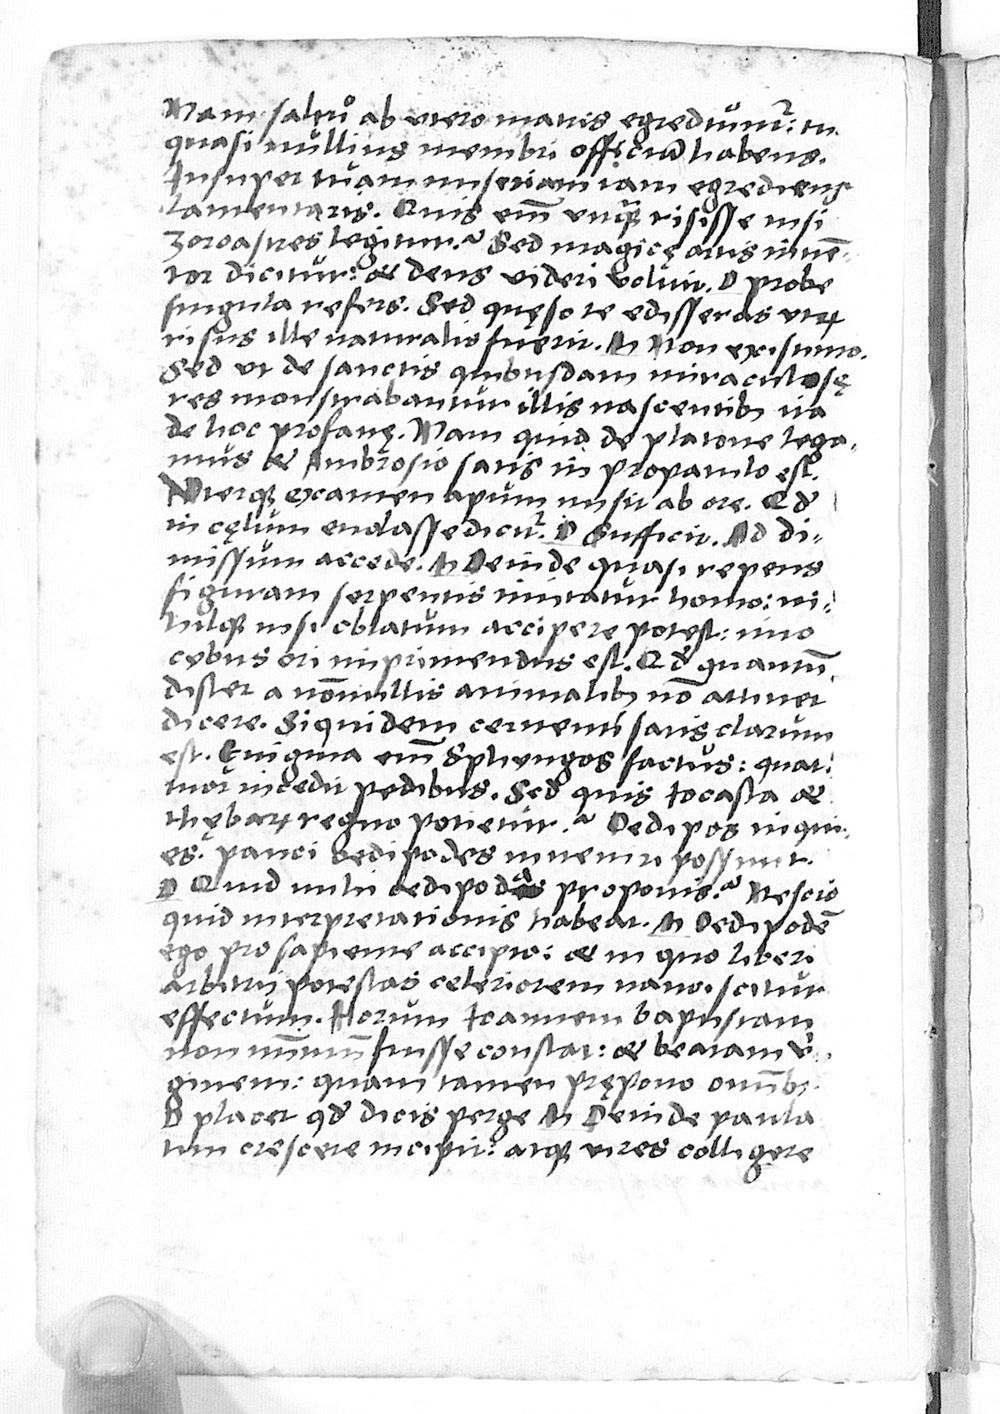 Nam saltu᷒ ab utero matris egrediunt᷑: tu
quasi nullius membri officiū habens.
Insuper tuam miseriam iam egrediens
lamentaris. Quis em̄ unq̄ risisse nisi
Zoroastres legitur? Sed magicę artis inuē-
tor dicitur: & deus uideri uoluit. D probe
singula refers. Sed quęso te edisseras utꝝ
risus ille naturalis fuerit. N Non existimo.
Sed ut de sanctis quibusdam miraculosę
res monstrabantur illis nascentib; ita
de hoc profanę. Nam quid de platone lega-
mus & Ambrosio satis in propatulo est.
Uterq; examen apum misit ab ore. Qd̓
in cęlum euolasse dicit᷑. D Sufficit. Ad di-
missum accede. N Deinde quasi repens
figuram serpentis imitatur homo: ni-
hilq; nisi oblatum accipere potest: imo
cybus ori imprimendus est. Qd̓ quantū
distet a nōnullis animalib; nō attinet
dicere. Siquidem cernenti satis clarum
est. Ęnigma em̄ Sphyngos factus: quat-
tuor incedit pedibus. Sed quis Iocasta &
thębaꝝ regno potietur? Oedipos inqui-
es. pauci oedipodes inueniri possunt.
D Quid mihi oedipodas proponis? Nescio
quid interpretationis habeat. N Oedipodē
ego pro sapiente accipio: & in quo liberi
arbitrij potestas celeriorem nanciscitur
effectum. Horum Ioannem baptistam
non minimū fuisse constat: & beatam uir-
ginem: quam tamen prępono omnib;.
D placet qd̓ dicis perge N Deinde paula
tim crescere incipit: atq; uires colligere